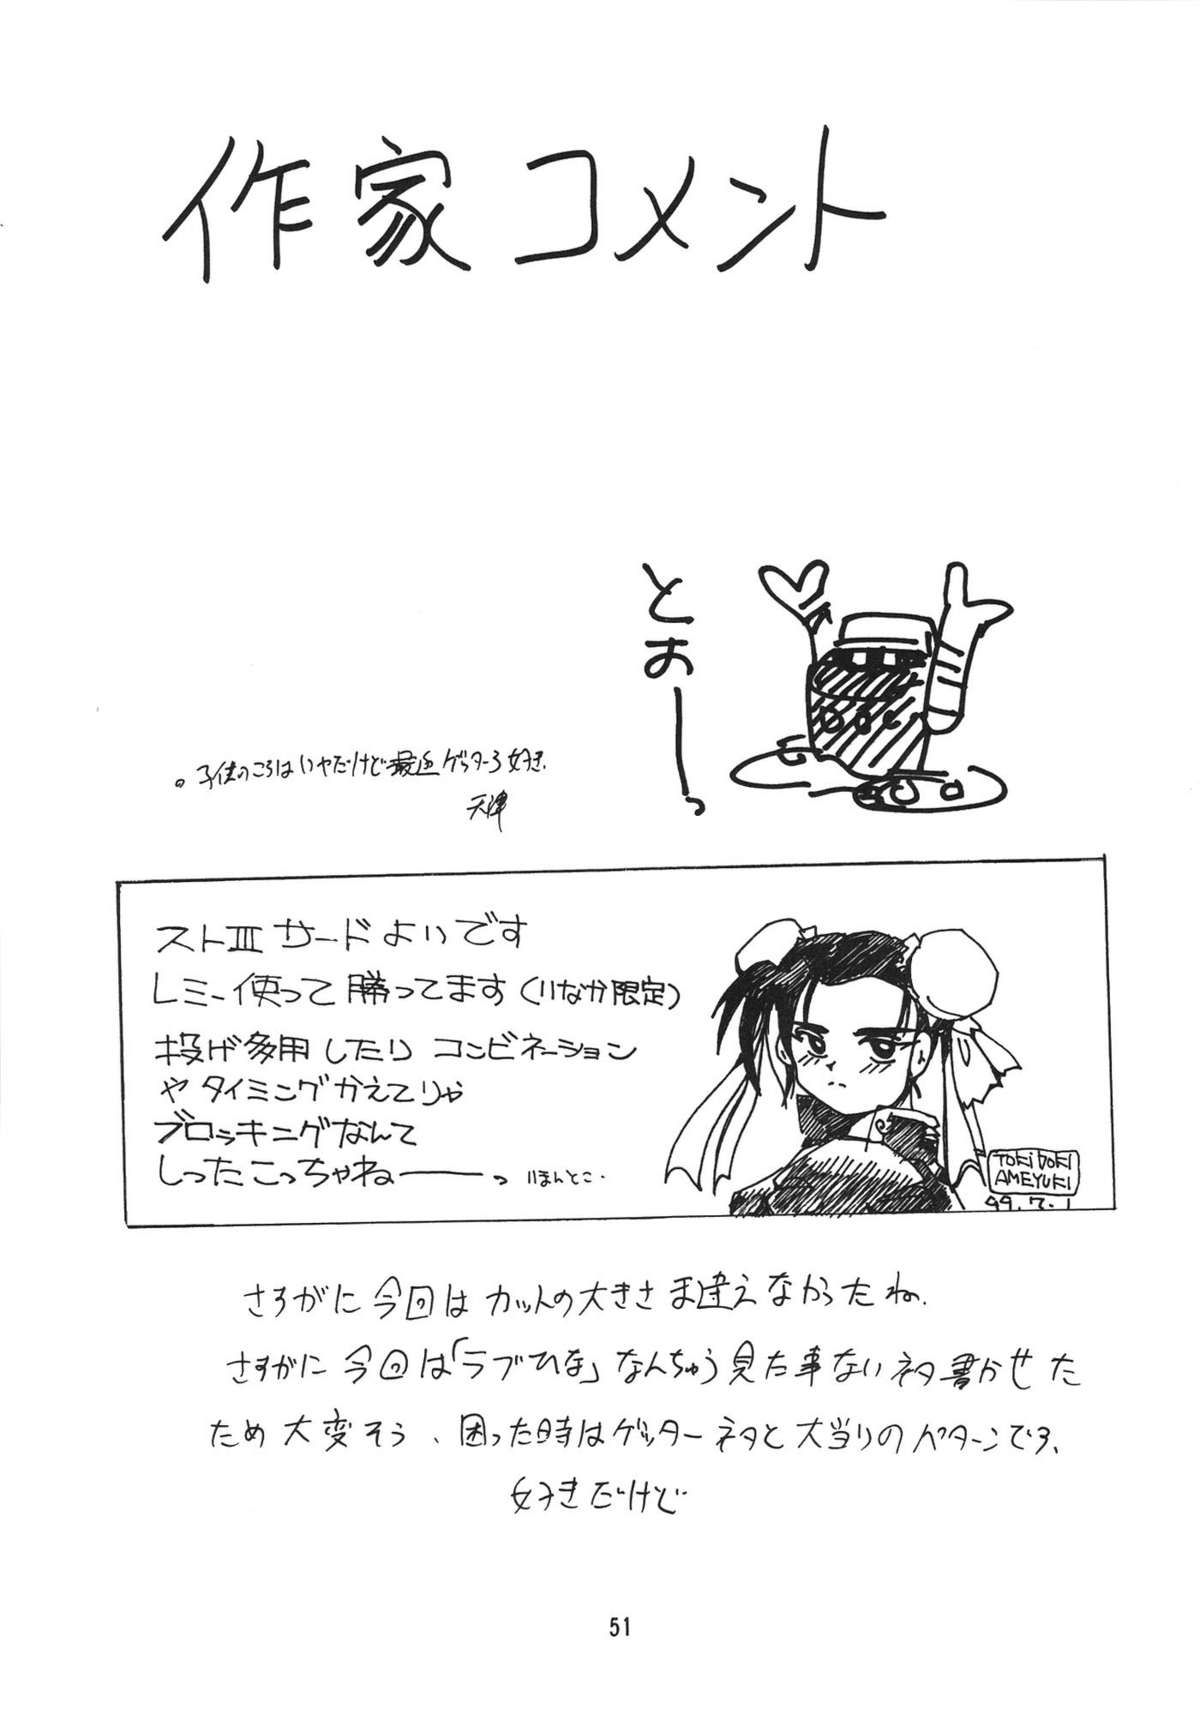 作家コメント
とおーっ
。子供のころはイヤだけど最近ゲッター3好き.
天津
ストIII サードよいです
レミー使って勝ってます(いなか限定)
投げ多用したり コンビネーション
や タイミングかえてりゃ
ブロッキングなんて
しったこっちゃねーーっ
TOKIDOKI
AMEYUKI
99.7.1
さすがに今回はカットの大きさま違えなかったね.
さすがに今回は「ラブひな」なんちゅう見た事ないネタ書かせた
ため大変そう、困った時はゲッターネタと大当りのパターンです、
好きだけど
51